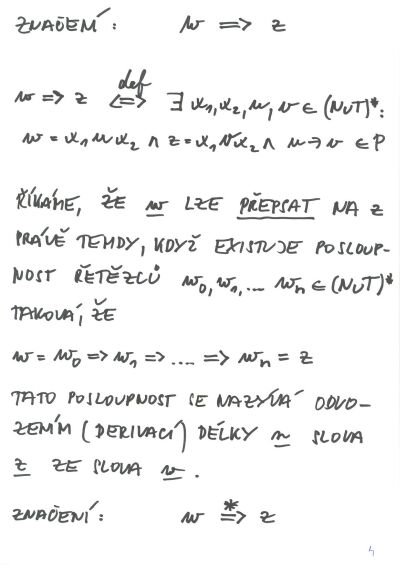 ZNAČENÍ: w => z
def
w => z <=> ∃ x₁, x₂, u, v ∈ (N∪T)*:
w = x₁ u x₂ ∧ z = x₁ v x₂ ∧ u → v ∈ P
ŘÍKÁME, ŽE w LZE PŘEPSAT NA z
PRÁVĚ TEHDY, KDYŽ EXISTUJE POSLOUP-
NOST ŘETĚZCŮ w₀, w₁, .... wₙ ∈ (N∪T)*
TAKOVÁ, ŽE
w = w₀ => w₁ => .... => wₙ = z
TATO POSLOUPNOST SE NAZÝVÁ ODVO-
ZENÍM (DERIVACÍ) DÉLKY n SLOVA
z ZE SLOVA w.
*
ZNAČENÍ: w => z
4